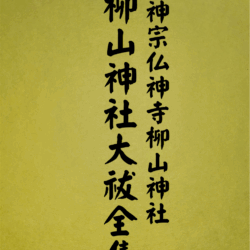 神宗仏神寺柳山神社
柳山神社大祓全集